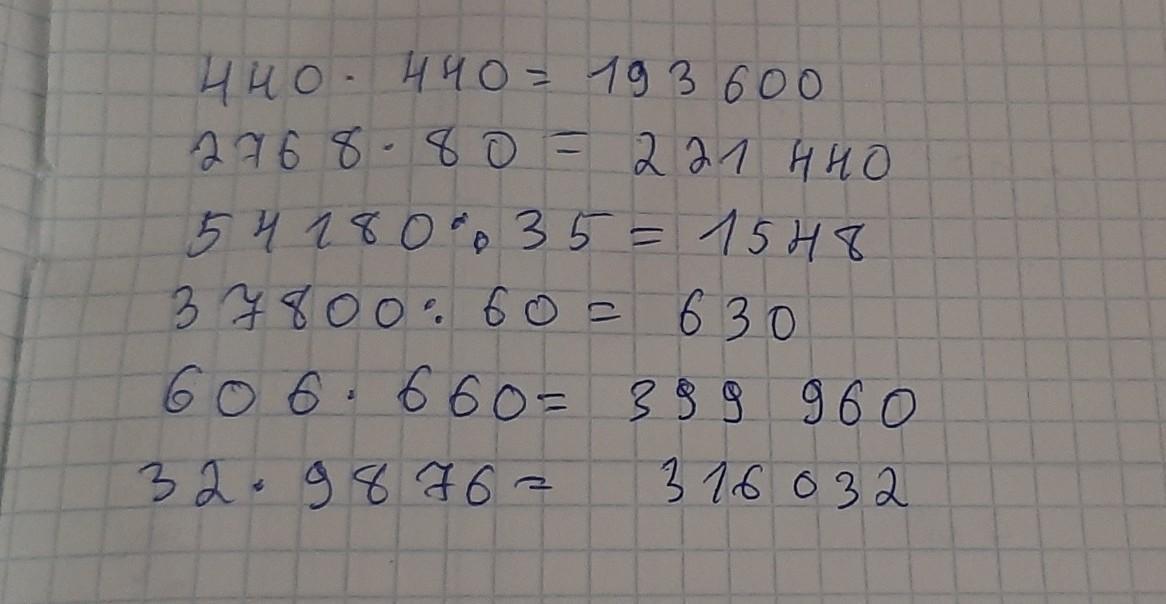 440 · 440 = 193 600
2768 · 80 = 221 440
54180 : 35 = 1548
37800 : 60 = 630
606 · 660 = 399 960
32 · 9876 = 316 032